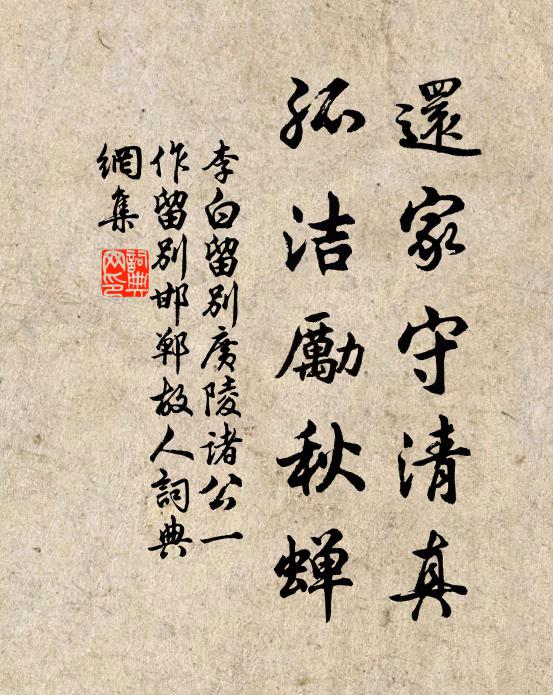 還家守清真
孤洁勵秋蝉
李白留别廣陵诸公一
作留别邯鄲故人詞典
網集
詞典
网印